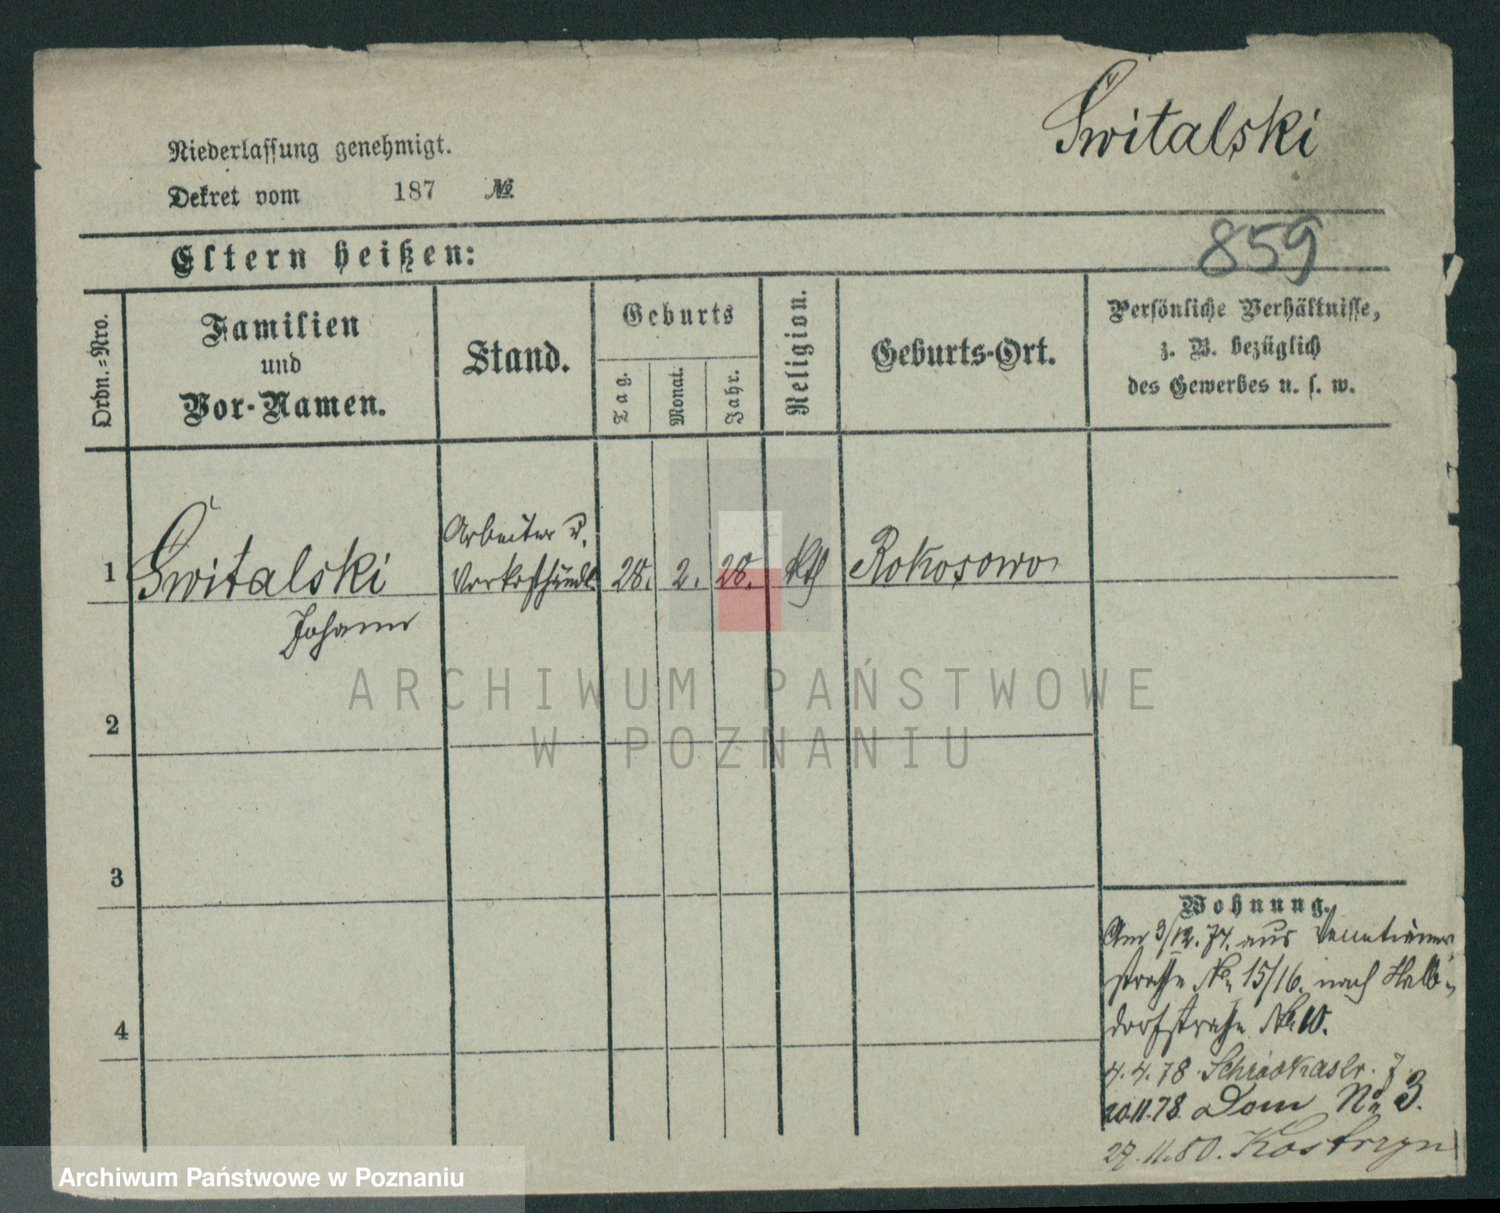 Świtalski
Niederlassung genehmigt.
Dekret vom 187 №
859
Eltern heißen:
Ordn.-Nro.
Familien
und
Vor-Namen.
Stand.
Geburts
Tag.
Monat.
Jahr.
Religion.
Geburts-Ort.
Persönliche Verhältnisse,
z. B. bezüglich
des Gewerbes u. s. w.
1
Świtalski
Johann
Arbeiter u.
Vorkosthändl.
28.
2.
28.
kth
Rokosowo
2
3
4
Wohnung.
Am 3/12.74. aus Venetianer
straße No 15/16. nach Halb-
dorfstraße No 10.
4.4.78 Schrodkastr. 7
20.11.78 Dom No 3.
27.11.80. Kostrzyn
ARCHIWUM PAŃSTWOWE
W POZNANIU
Archiwum Państwowe w Poznaniu